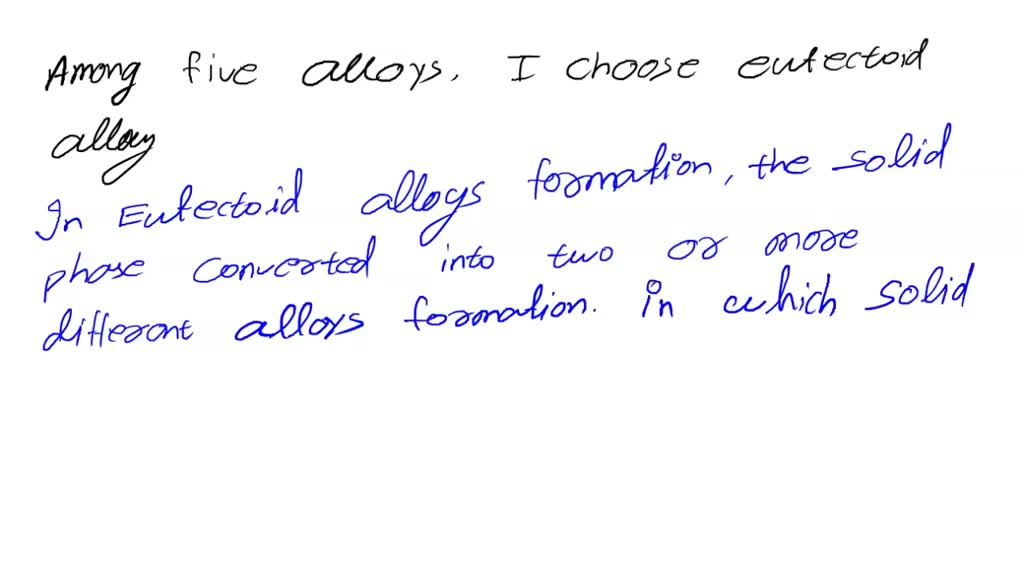 Among five alloys. I choose eutectoid
alloy
In Eutectoid alloys formation, the solid
phase converted into two or more
different alloys formation. in which solid